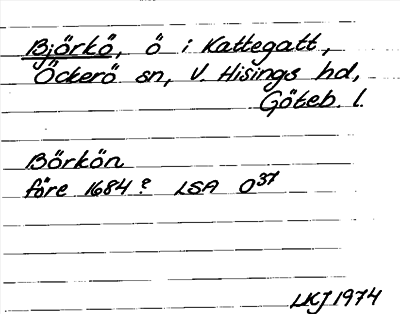 Björkö, ö i Kattegatt,
Öckerö sn, V. Hisings hd,
Göteb. l.
Börkön
före 1684? LSA O37
LKJ 1974